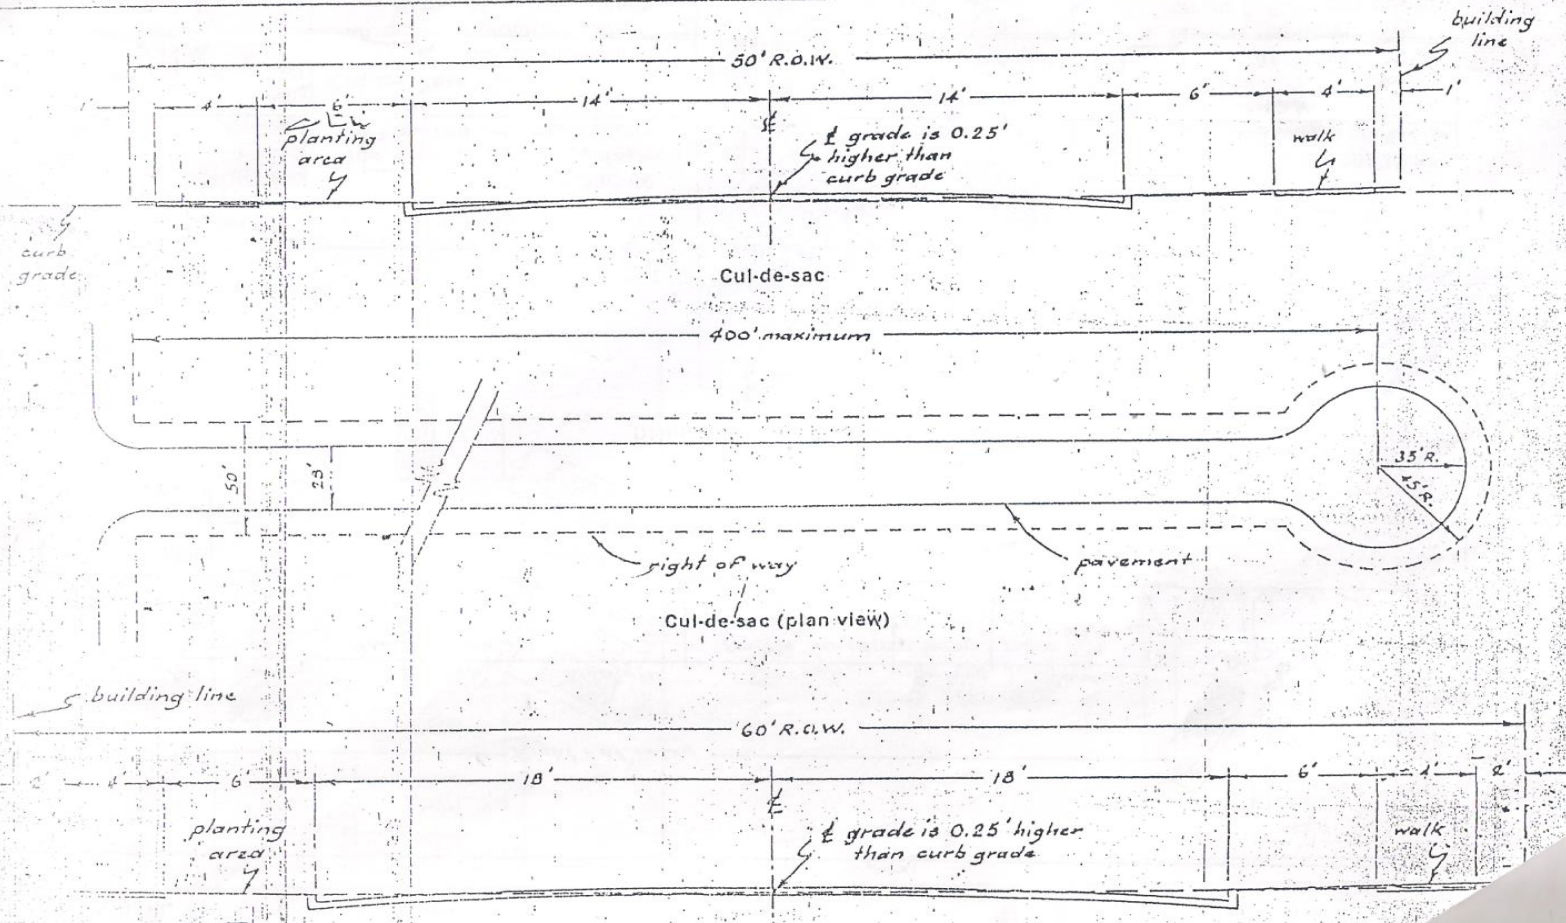 building
line
50' R.O.W.
1' 4' 6' 14' 14' 6' 4' 1'
planting
area
℄
℄ grade is 0.25'
higher than
curb grade
walk
curb
grade
Cul-de-sac
400' maximum
50'
28'
35'R.
45'R.
right of way
pavement
Cul-de-sac (plan view)
building line
60' R.O.W.
2' 4' 6' 18' 18' 6' 4' 2'
℄
planting
area
℄ grade is 0.25' higher
than curb grade
walk